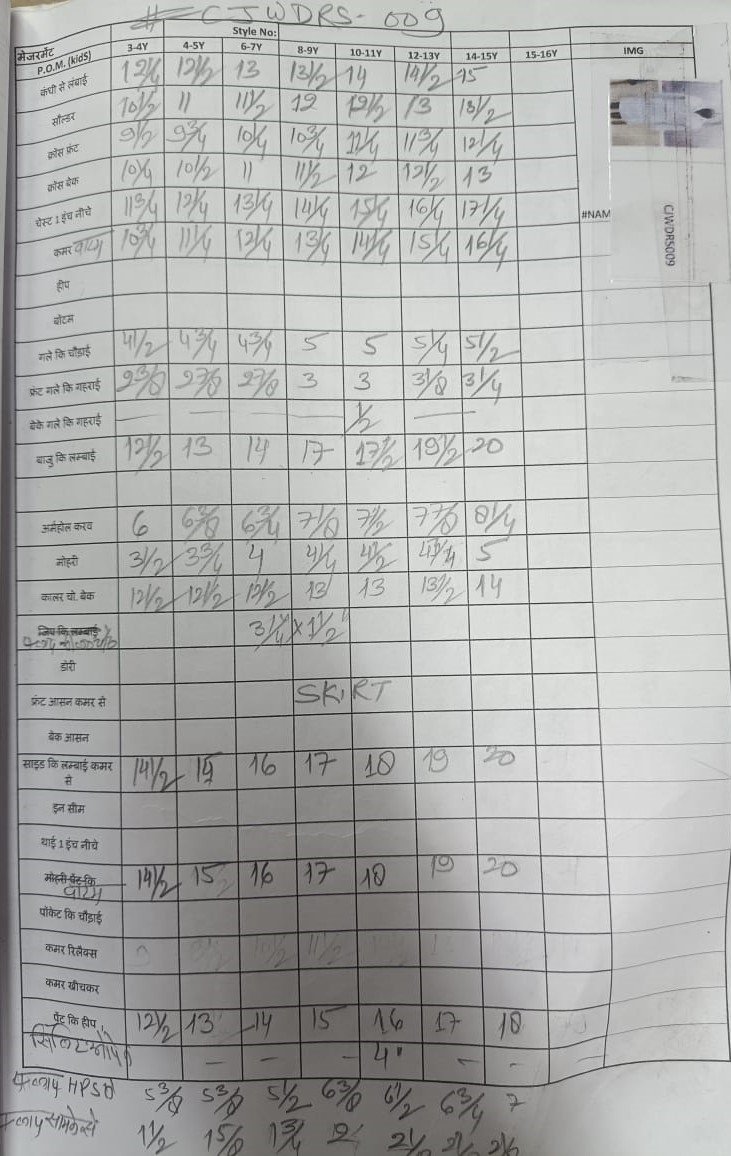 # CJWDRS-009
Style No:
मेजरमेंट
P.O.M. (kids) 3-4Y 4-5Y 6-7Y 8-9Y 10-11Y 12-13Y 14-15Y 15-16Y IMG
कंधी से लंबाई 12 1/4 12 1/2 13 13 1/2 14 14 1/2 15
सौल्डर 10 1/2 11 11 1/2 12 12 1/2 13 13 1/2
क्रॉस फ्रंट 9 1/2 9 3/4 10 1/4 10 3/4 11 1/4 11 3/4 12 1/4
क्रॉस बेक 10 1/4 10 1/2 11 11 1/2 12 12 1/2 13
चेस्ट 1 इंच नीचे 11 3/4 12 1/4 13 1/4 14 1/4 15 1/4 16 1/4 17 1/4
#NAM
CJWDRS009
कमर बाटम 10 3/4 11 1/4 12 1/4 13 1/4 14 1/4 15 1/4 16 1/4
हीप
बोटम
गले कि चौड़ाई 4 1/2 4 3/4 4 3/4 5 5 5 1/4 5 1/2
फ्रंट गले कि गहराई 2 3/8 2 7/8 2 7/8 3 3 3 1/8 3 1/4
बेके गले कि गहराई 1/2
बाजु कि लम्बाई 12 1/2 13 14 17 17 1/2 19 1/2 20
अर्महोल करव 6 6 3/8 6 3/4 7 1/8 7 1/2 7 7/8 8 1/4
मोहरी 3 1/2 3 3/4 4 4 1/4 4 1/2 4 3/4 5
कालर चो. बेक 12 1/2 12 1/2 12 1/2 13 13 13 1/2 14
जिप कि लम्बाई 3 1/4 x 1 1/2"
डोरी
फ्रंट आसन कमर से SKIRT
बेक आसन
साइड कि लम्बाई कमर से 14 1/2 15 16 17 18 19 20
इन सीम
थाई 1 इंच नीचे
मोहरी पेंट कि बाटम 14 1/2 15 16 17 18 19 20
पॉकेट कि चौड़ाई
कमर रिलैक्स
कमर खीचकर
पेंट कि हीप 12 1/2 13 14 15 16 17 18
— — — 4" — — —
HPS से 5 3/8 5 3/8 5 1/2 6 3/8 6 1/2 6 3/4 7
1 1/2 1 5/8 1 3/4 2